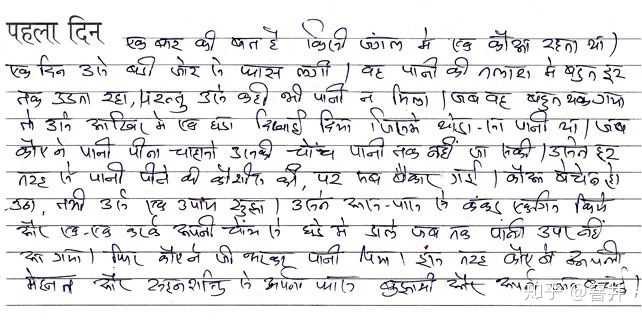 पहला दिन एक बार की बात है किसी जंगल मे एक कौआ रहता था)
एक दिन उसे बडी जोर से प्यास लगी | वह पानी की तलाश मे बहुत दूर
तक उडता रहा, परन्तु उसे कही भी पानी न मिला | जब वह बहुत थक गया
तो उसे आखिर मे एक घडा दिखाई दिया जिसमे थोडा-सा पानी था | जब
कौए ने पानी पीना चाहातो उसकी चोंच पानी तक नहीं जा सकी | उसने हर
तरह से पानी पीने की कोशीश की, पर सब बेकार गई | कौआ बेचेन हो
उठा, तभी उसे एक उपाय सुझा | उसने आस-पास से कंकड एकत्रित किये
और एक-एक करके अपनी चोंच से घडे मे डाले जब तक पानी उपर नहीं
आ गया | फिर कौए ने जी भरकर पानी पिया | इस तरह कौए ने अपनी
मेहनत और सहनशक्ति से अपनी प्यास बुझायी और अपनी जान बचाई |
知乎 @